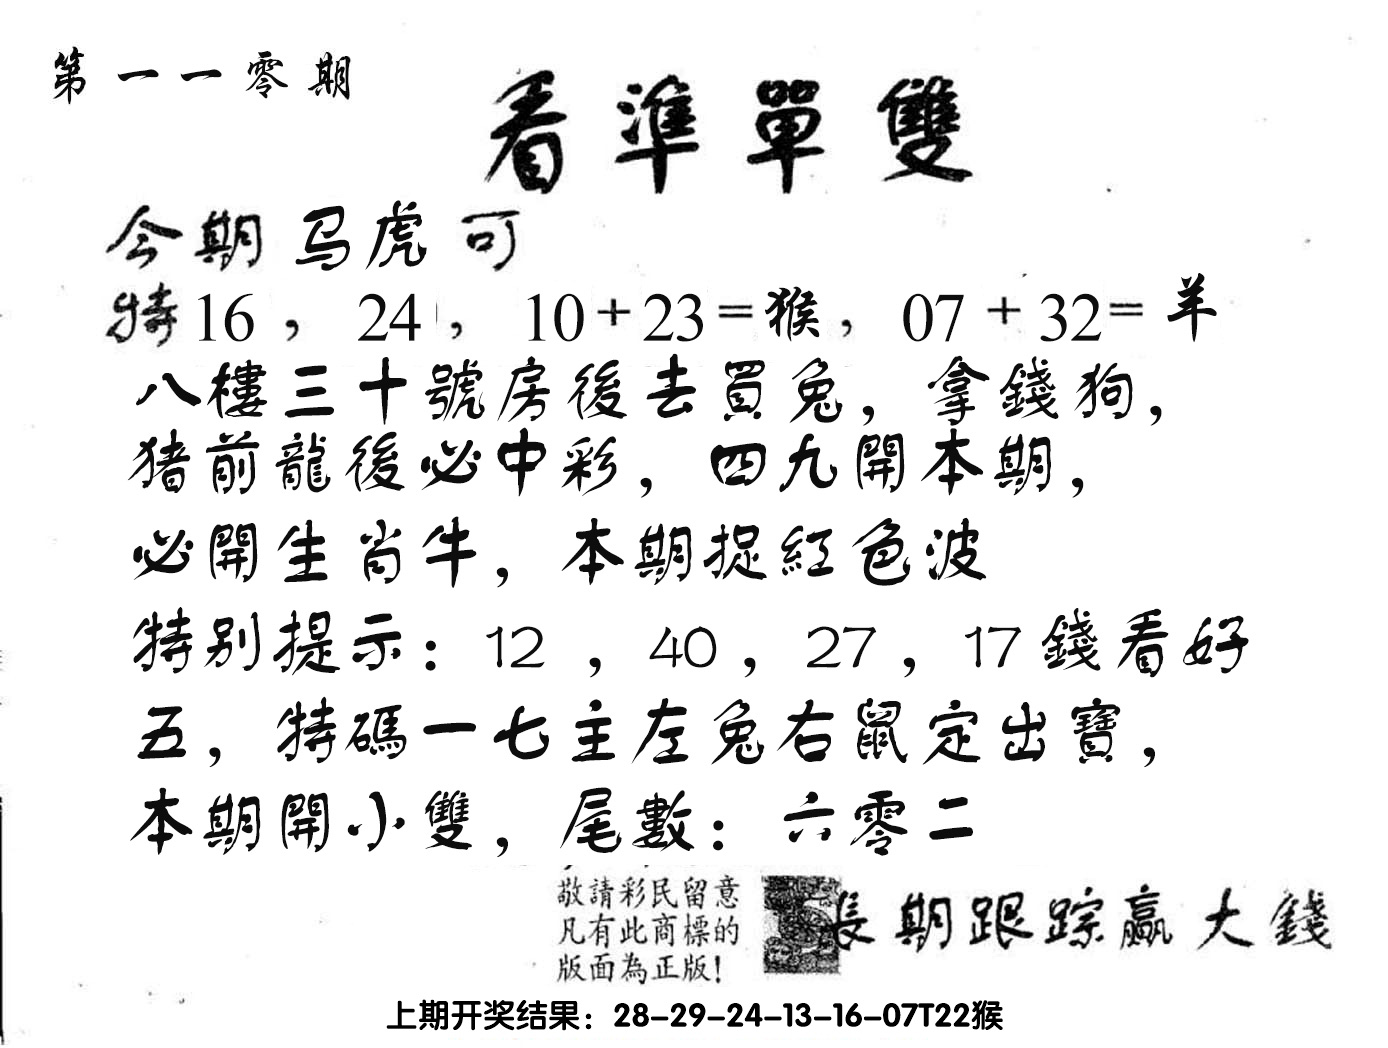 第一一零期
看準單雙
今期马虎可
特16，24，10+23=猴，07+32=羊
八樓三十號房後去買兔，拿錢狗，
猪前龍後必中彩，四九開本期，
必開生肖牛，本期捉紅色波
特别提示：12，40，27，17錢看好
五，特碼一七主左兔右鼠定出寶，
本期開小雙，尾數：六零二
敬請彩民留意
凡有此商標的
版面為正版！
長期跟踪赢大錢
上期开奖结果：28-29-24-13-16-07T22猴